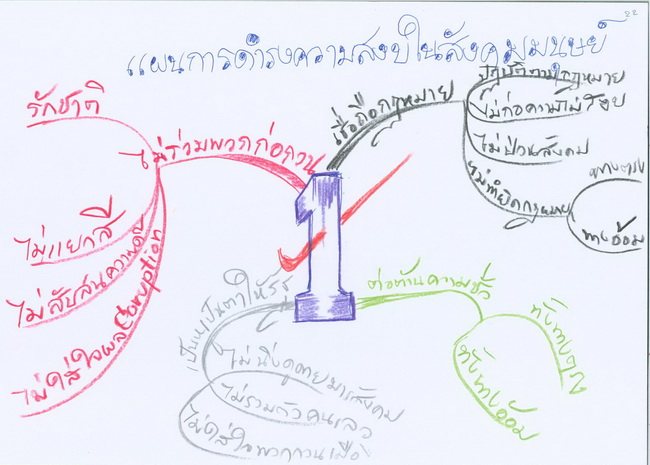 22
แผนการดำรงความสงบในสังคมมนุษย์
เชื่อถือกฎหมาย
ปฏิบัติตามกฎหมาย
ไม่ก่อความไม่สงบ
ไม่ป่วนสังคม
ไม่ทำผิดกฎหมาย
ทางตรง
ทางอ้อม
ต่อต้านความชั่ว
ทั้งทางตรง
ทั้งทางอ้อม
เป็นหูเป็นตาให้รัฐ
ไม่นิ่งดูดายมารสังคม
ไม่รวมตัวคนเลว
ไม่ใส่ใจพวกกวนเมือง
ไม่ร่วมพวกก่อกวน
รักชาติ
ไม่แยกสี
ไม่สับสนความ
ไม่ใส่ใจผล Coruption
1